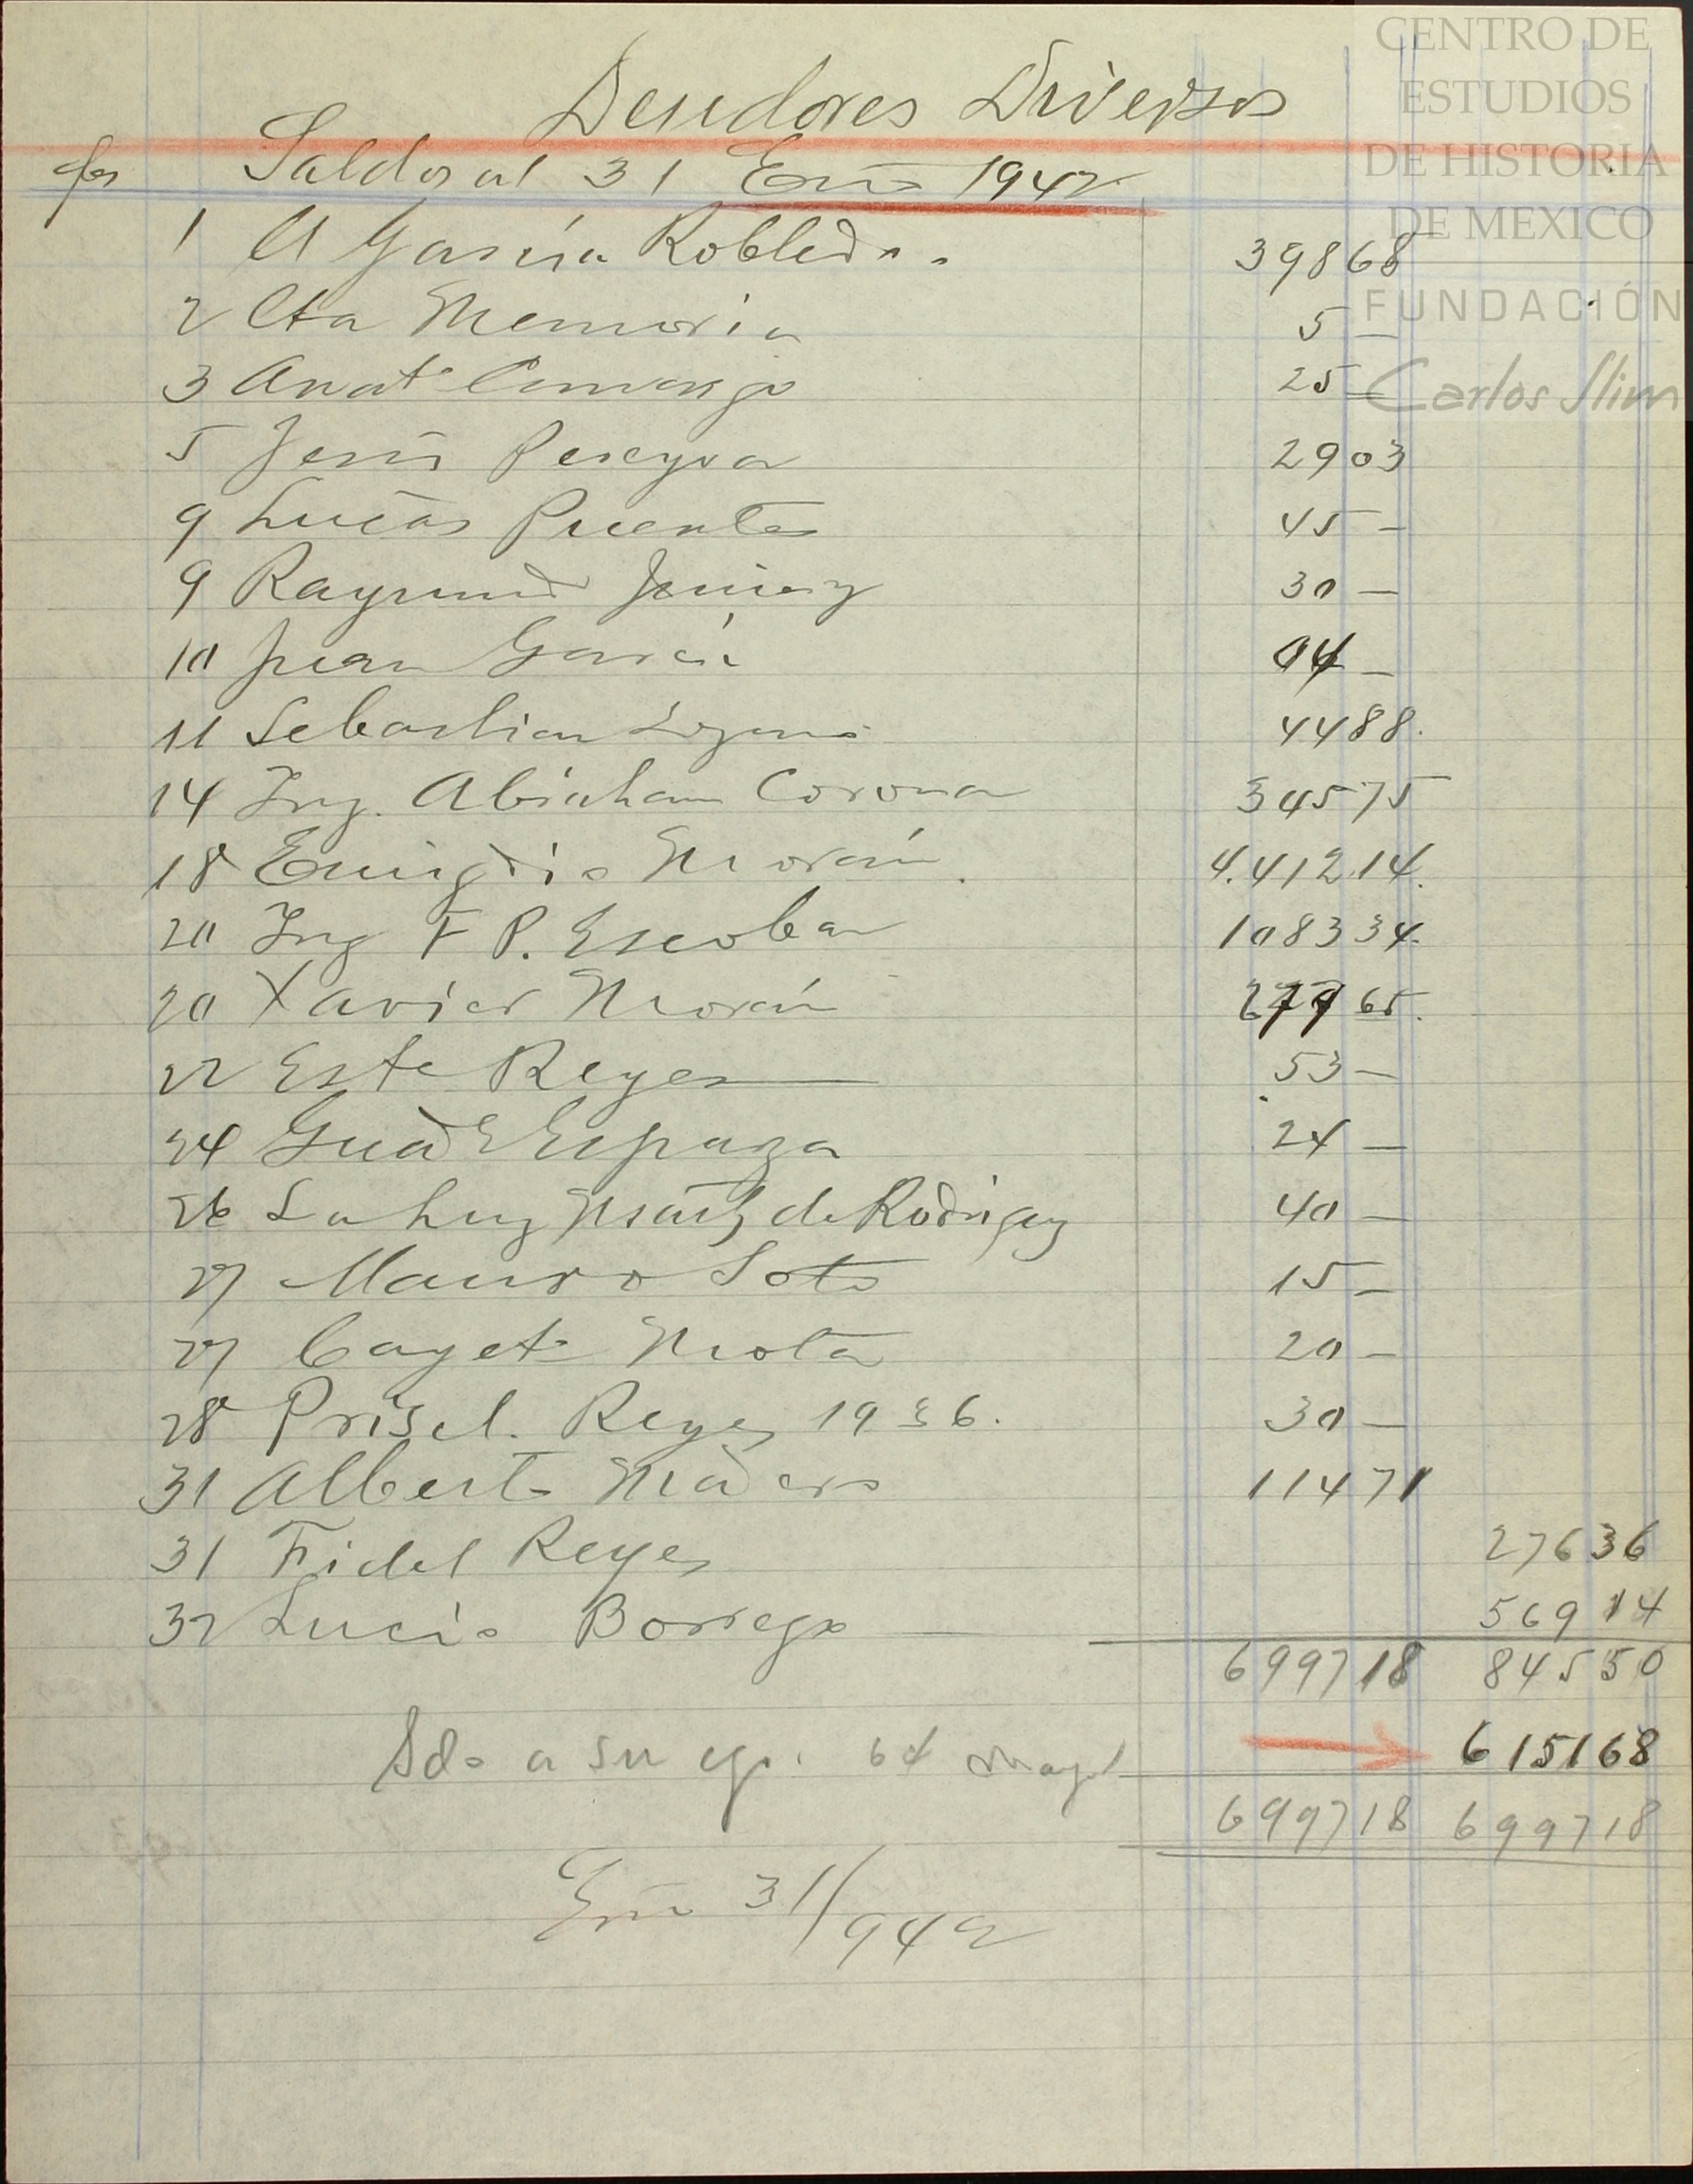 CENTRO DE
ESTUDIOS
DE HISTORIA
DE MEXICO
FUNDACIÓN
Carlos Slim
Deudores Diversos
fjs Saldos al 31 Eno 1942
1 A García Robledo. 398 68
2 Cta Memoria 5 —
3 Anat° Camargo 25 —
5 Jesús Pereyra 29 03
9 Lucas Puentes 45 —
9 Raymundo Jimez 30 —
10 Juan García 04 —
11 Sebastian Lozano 44 88.
14 Ing. Abraham Corona 345 75
18 Emigdio Morán. 4.412.14.
20 Ing F P. Escobar 1083 34.
20 Xavier Morán 65.
22 Este Reyes — 53 —
24 Guad E Esparza 24 —
26 La Luz Martz de Rodriguez 40 —
27 Mauro Soto 15 —
27 Cayet° Mota 20 —
28 Prisel. Reyes 1936. 30 —
31 Alberto Madero 114 71
31 Fidel Reyes 276 36
32 Lucio Borrego — 569 14
6997 18 845 50
Sdo a su cgo. 64 Mayor 6151 68
6997 18 6997 18
Eno 31/942